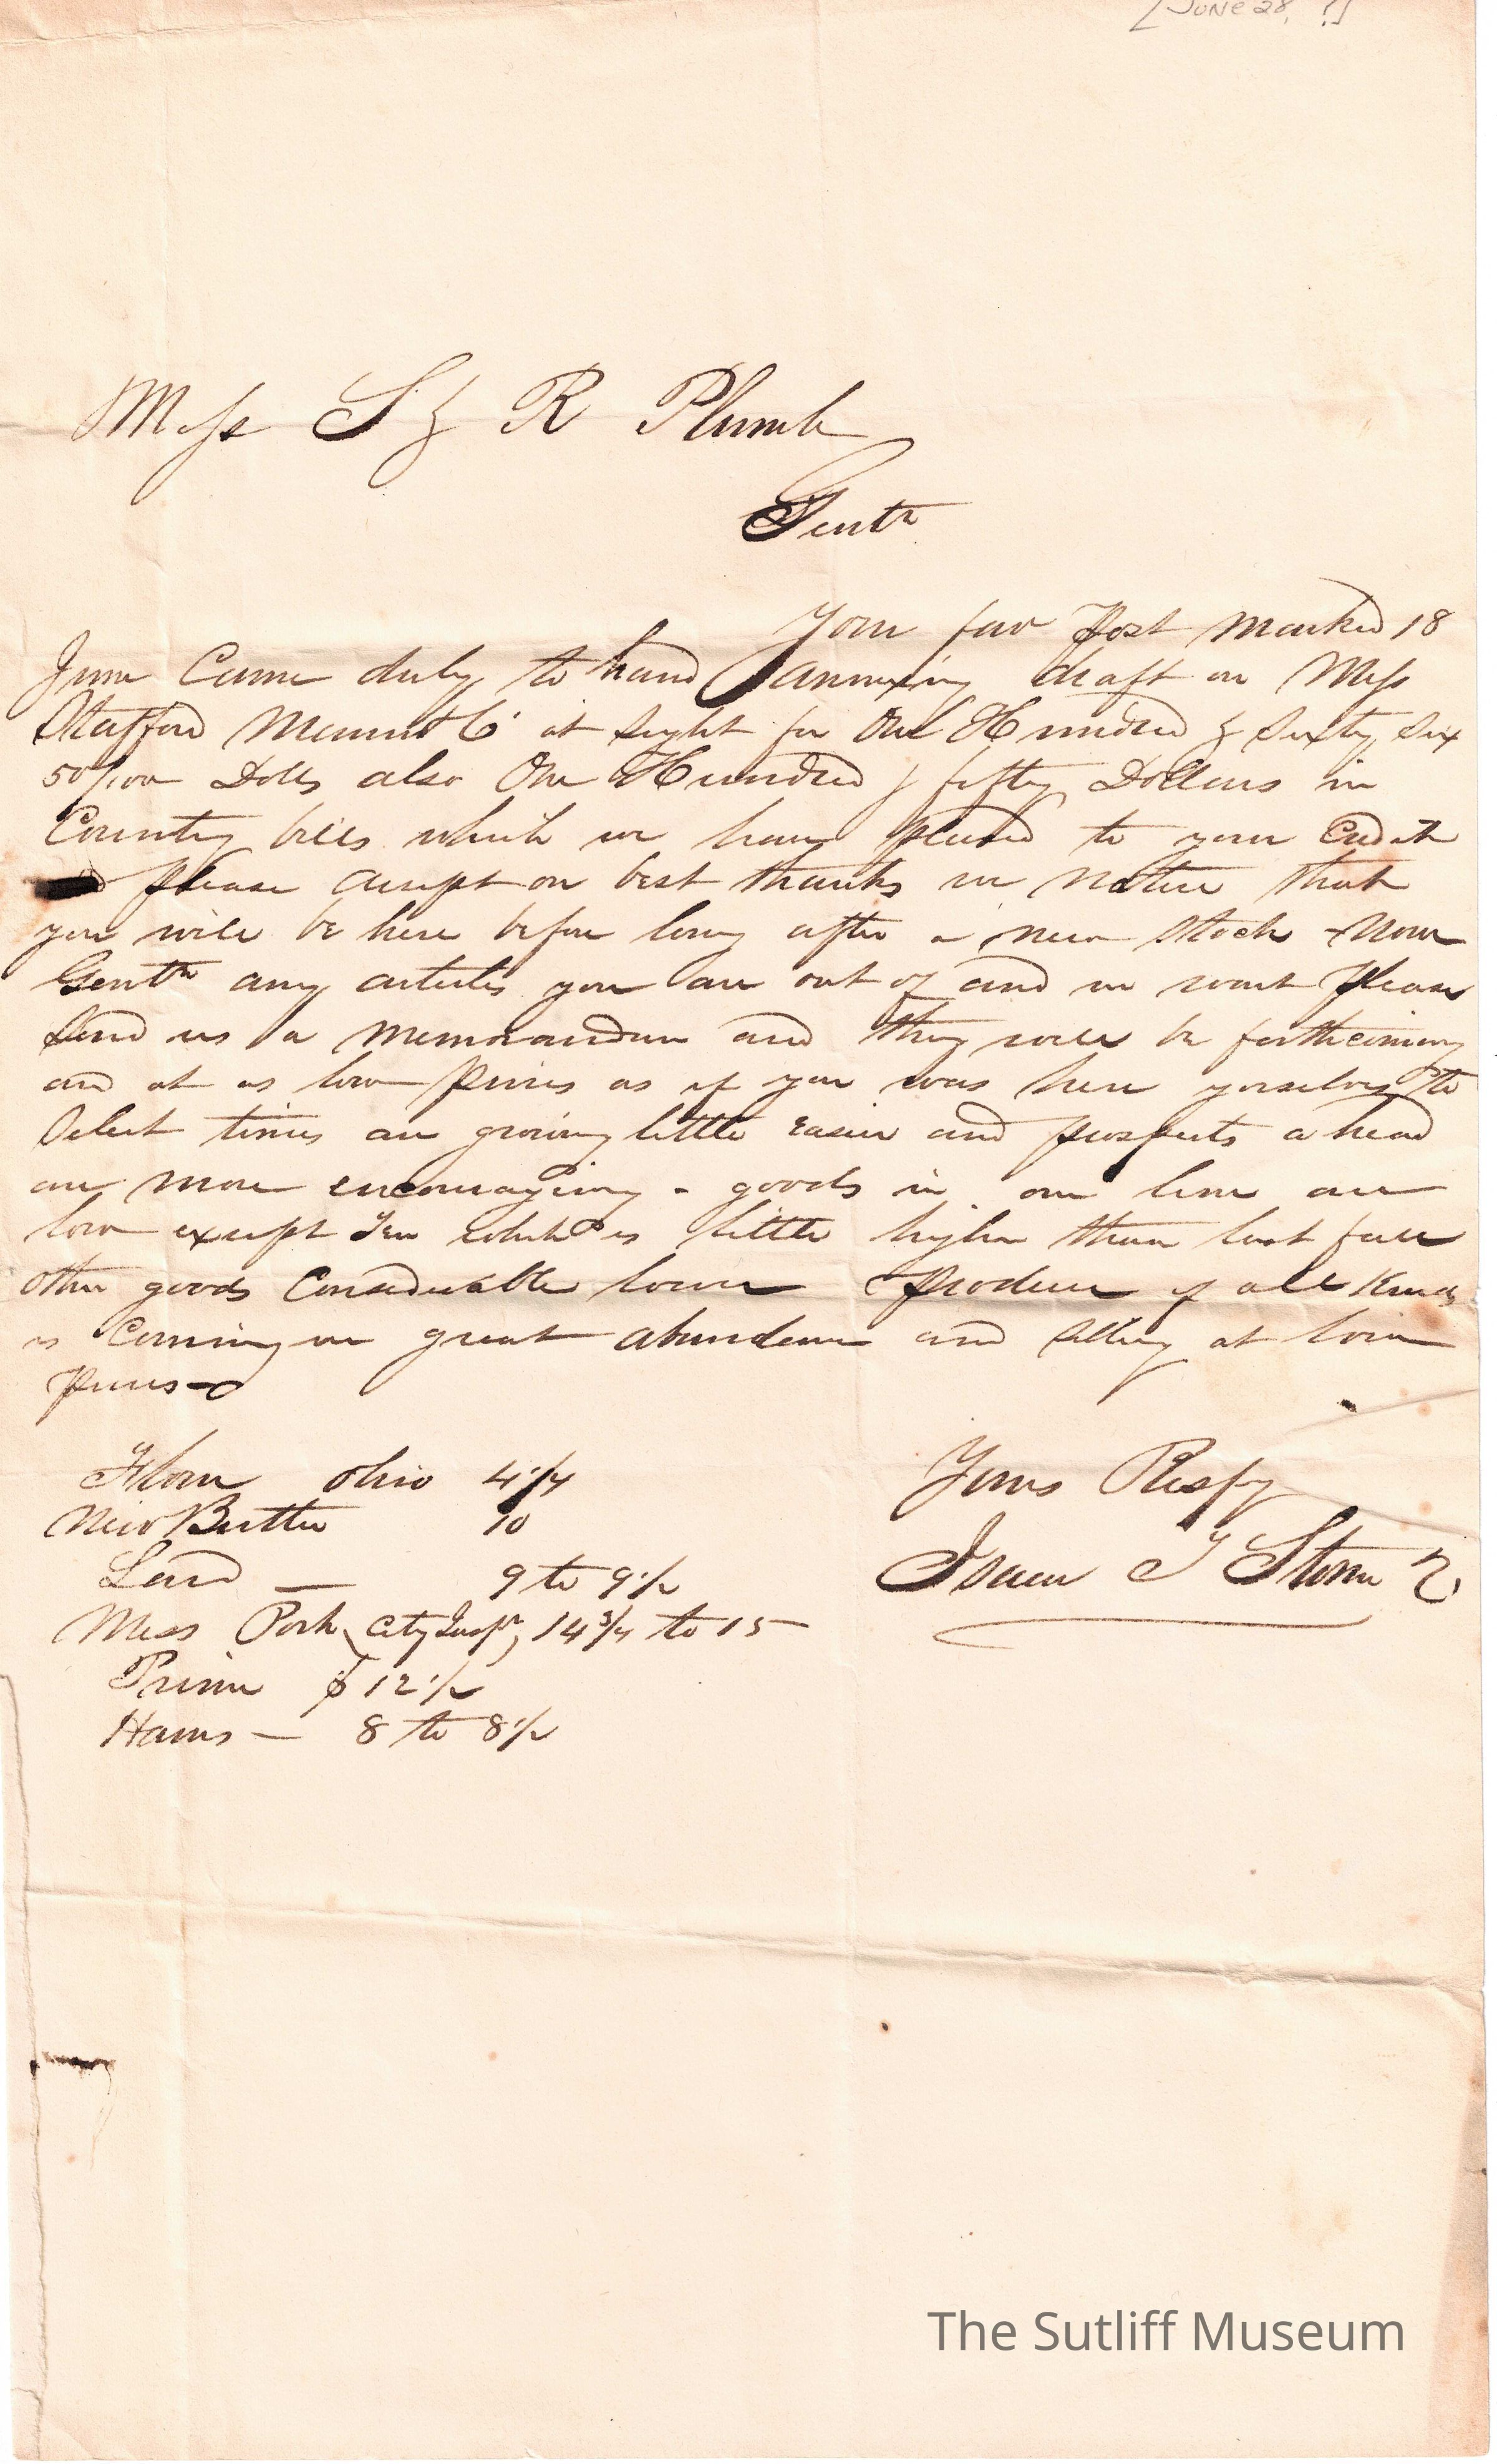 [June 28, ?]
Mess S & R Plumb
Gentn
Your favr post marked 18
June Came duly to hand annexing draft on Mess
Stafford & Co at sight for One Hundred & Sixty Six
50/100 Dolls also One Hundred & fifty Dollars in
Country bills which we have placed to your Credit
please accept our best thanks we notice that
you will be here before long after a new Stock - Now
Gentn any articles you are out of and in want please
Send us a memorandum and they will be forthcoming
and at as low prices as if you was here yourselves to
Select times are growing little easier and prospects a head
are more encouraging - goods in our line are
low except Tea which is little higher than last fall
other goods Considerable lower produce of all Kinds
is Coming in great abundance and selling at low
prices
Flour Ohio 4 1/4
New Butter 10
Lard — 9 to 9 1/2
Mess Pork City Inspn, 14 3/4 to 15
Prime $ 12 1/2
Hams — 8 to 8 1/2
Yours Respy
Isaac T Storm
The Sutliff Museum